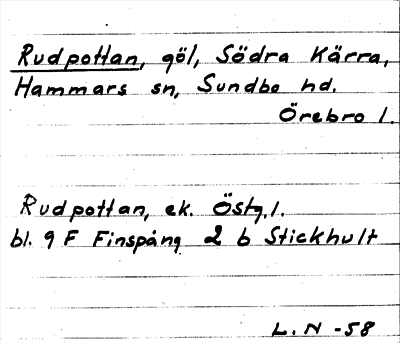 Rudpottan, göl, Södra Kärra,
Hammars sn, Sundbo hd.
Örebro l.
Rudpottan, ek. Östg. l.
bl. 9 F Finspång 2 b Stickhult
L. N -58